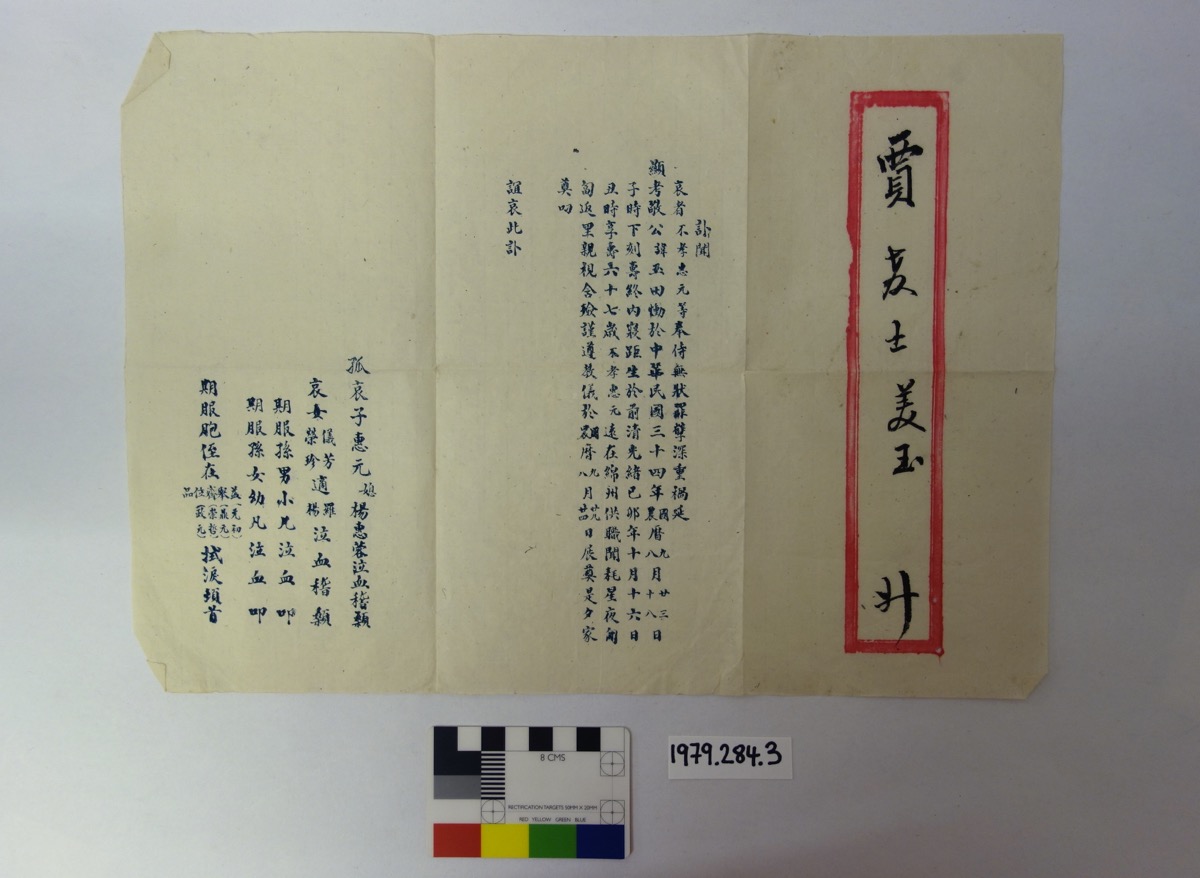 賈女士美玉 升
訃聞
哀者不孝惠元等奉侍無狀罪孽深重禍延
顯考敬公諱玉田慟於中華民國三十四年國曆九月廿三日農曆八月十八日
子時下刻壽終內寢距生於前清光緒己卯年十月十六日
丑時享壽六十七歲不孝惠元遠在綿州供職聞耗星夜匍
匐返里親視含殮謹遵教儀於國曆九月廿九日農曆八月廿四日展奠是夕家
奠叨
誼哀此訃
孤哀子惠元媳楊惠蓉泣血稽顙
哀女儀芳榮珍適羅楊泣血稽顙
期服孫男小凡泣血叩
期服孫女幼凡泣血叩
期服胞侄在 拭淚頓首
1979.284.3
8 CMS
RECTIFICATION TARGETS 50MM X 20MM
RED YELLOW GREEN BLUE